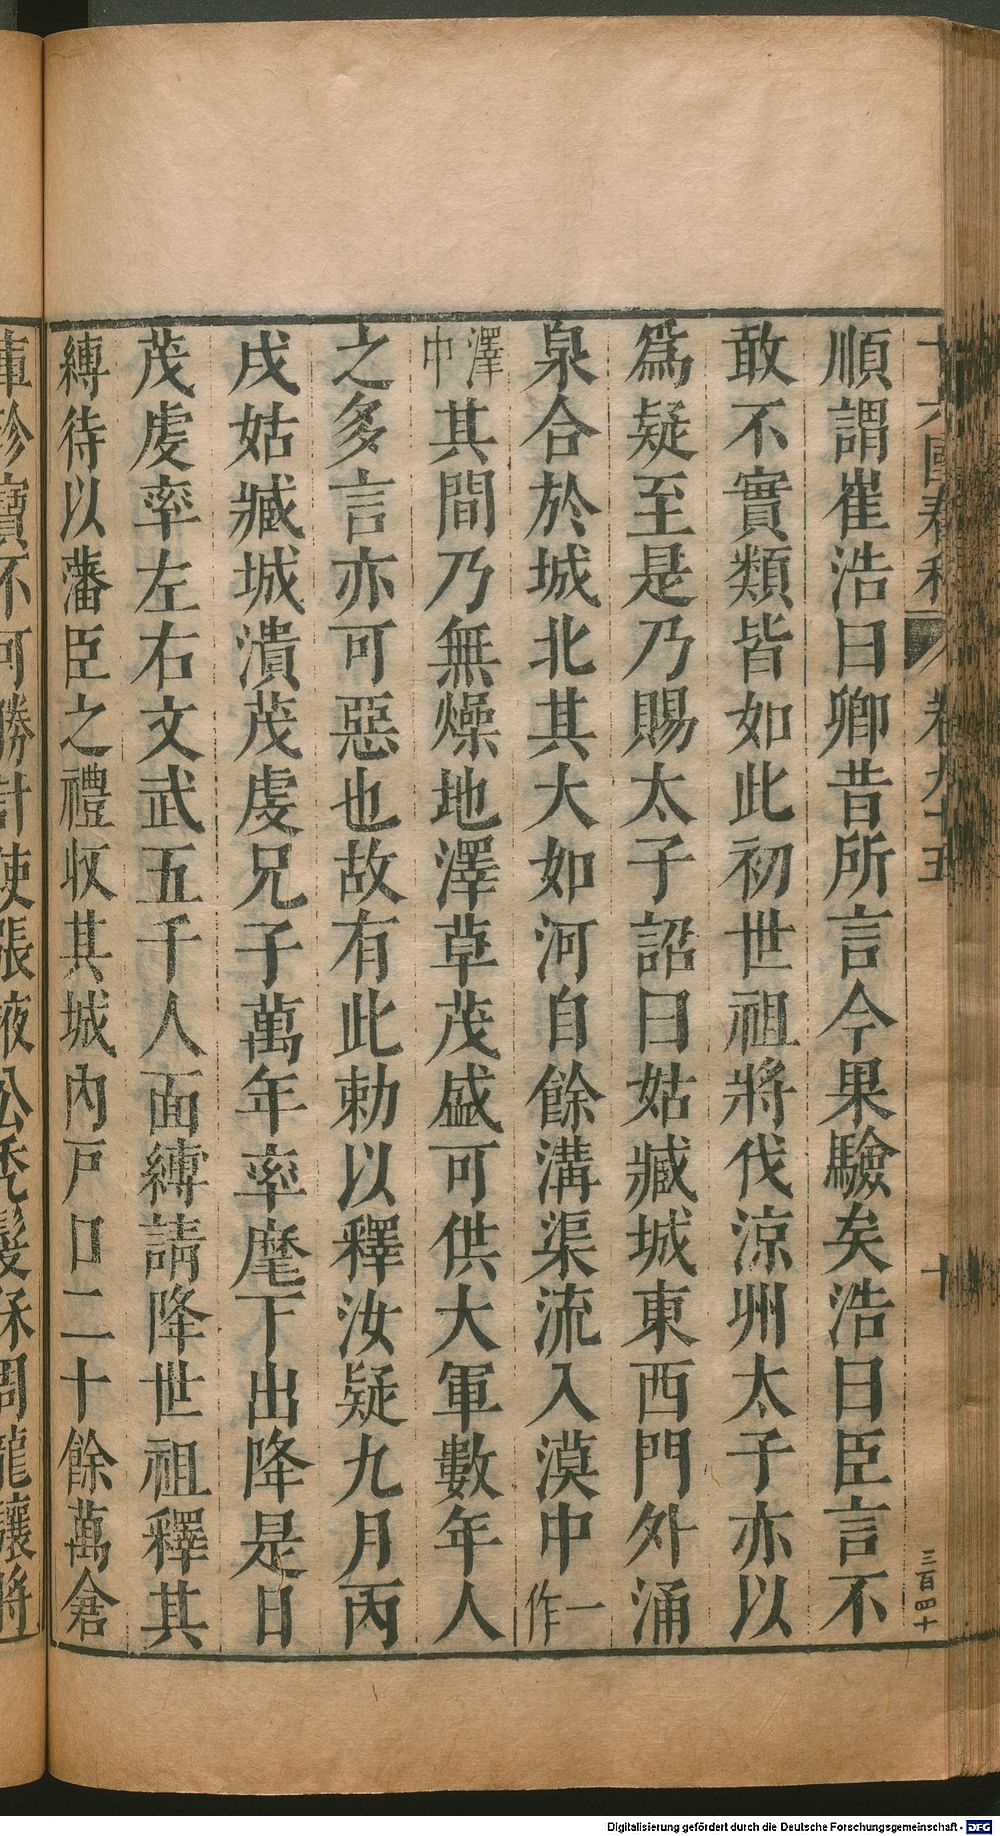 順謂崔浩曰卿昔所言今果驗矣浩曰臣言不
敢不實類皆如此初世祖將伐涼州太子亦以
爲疑至是乃賜太子詔曰姑臧城東西門外涌
泉合於城北其大如河自餘溝渠流入漠中一作
澤中其間乃無燥地澤草茂盛可供大軍數年人
之多言亦可惡也故有此勅以釋汝疑九月丙
戌姑臧城潰茂虔兄子萬年率麾下出降是日
茂虔率左右文武五千人面縛請降世祖釋其
縛待以藩臣之禮收其城內戸口二十餘萬倉
庫珍寶不可勝計使張掖公禿髮保周龍驤將
卷九十五
十
三百四十
Digitalisierung gefördert durch die Deutsche Forschungsgemeinschaft - DFG